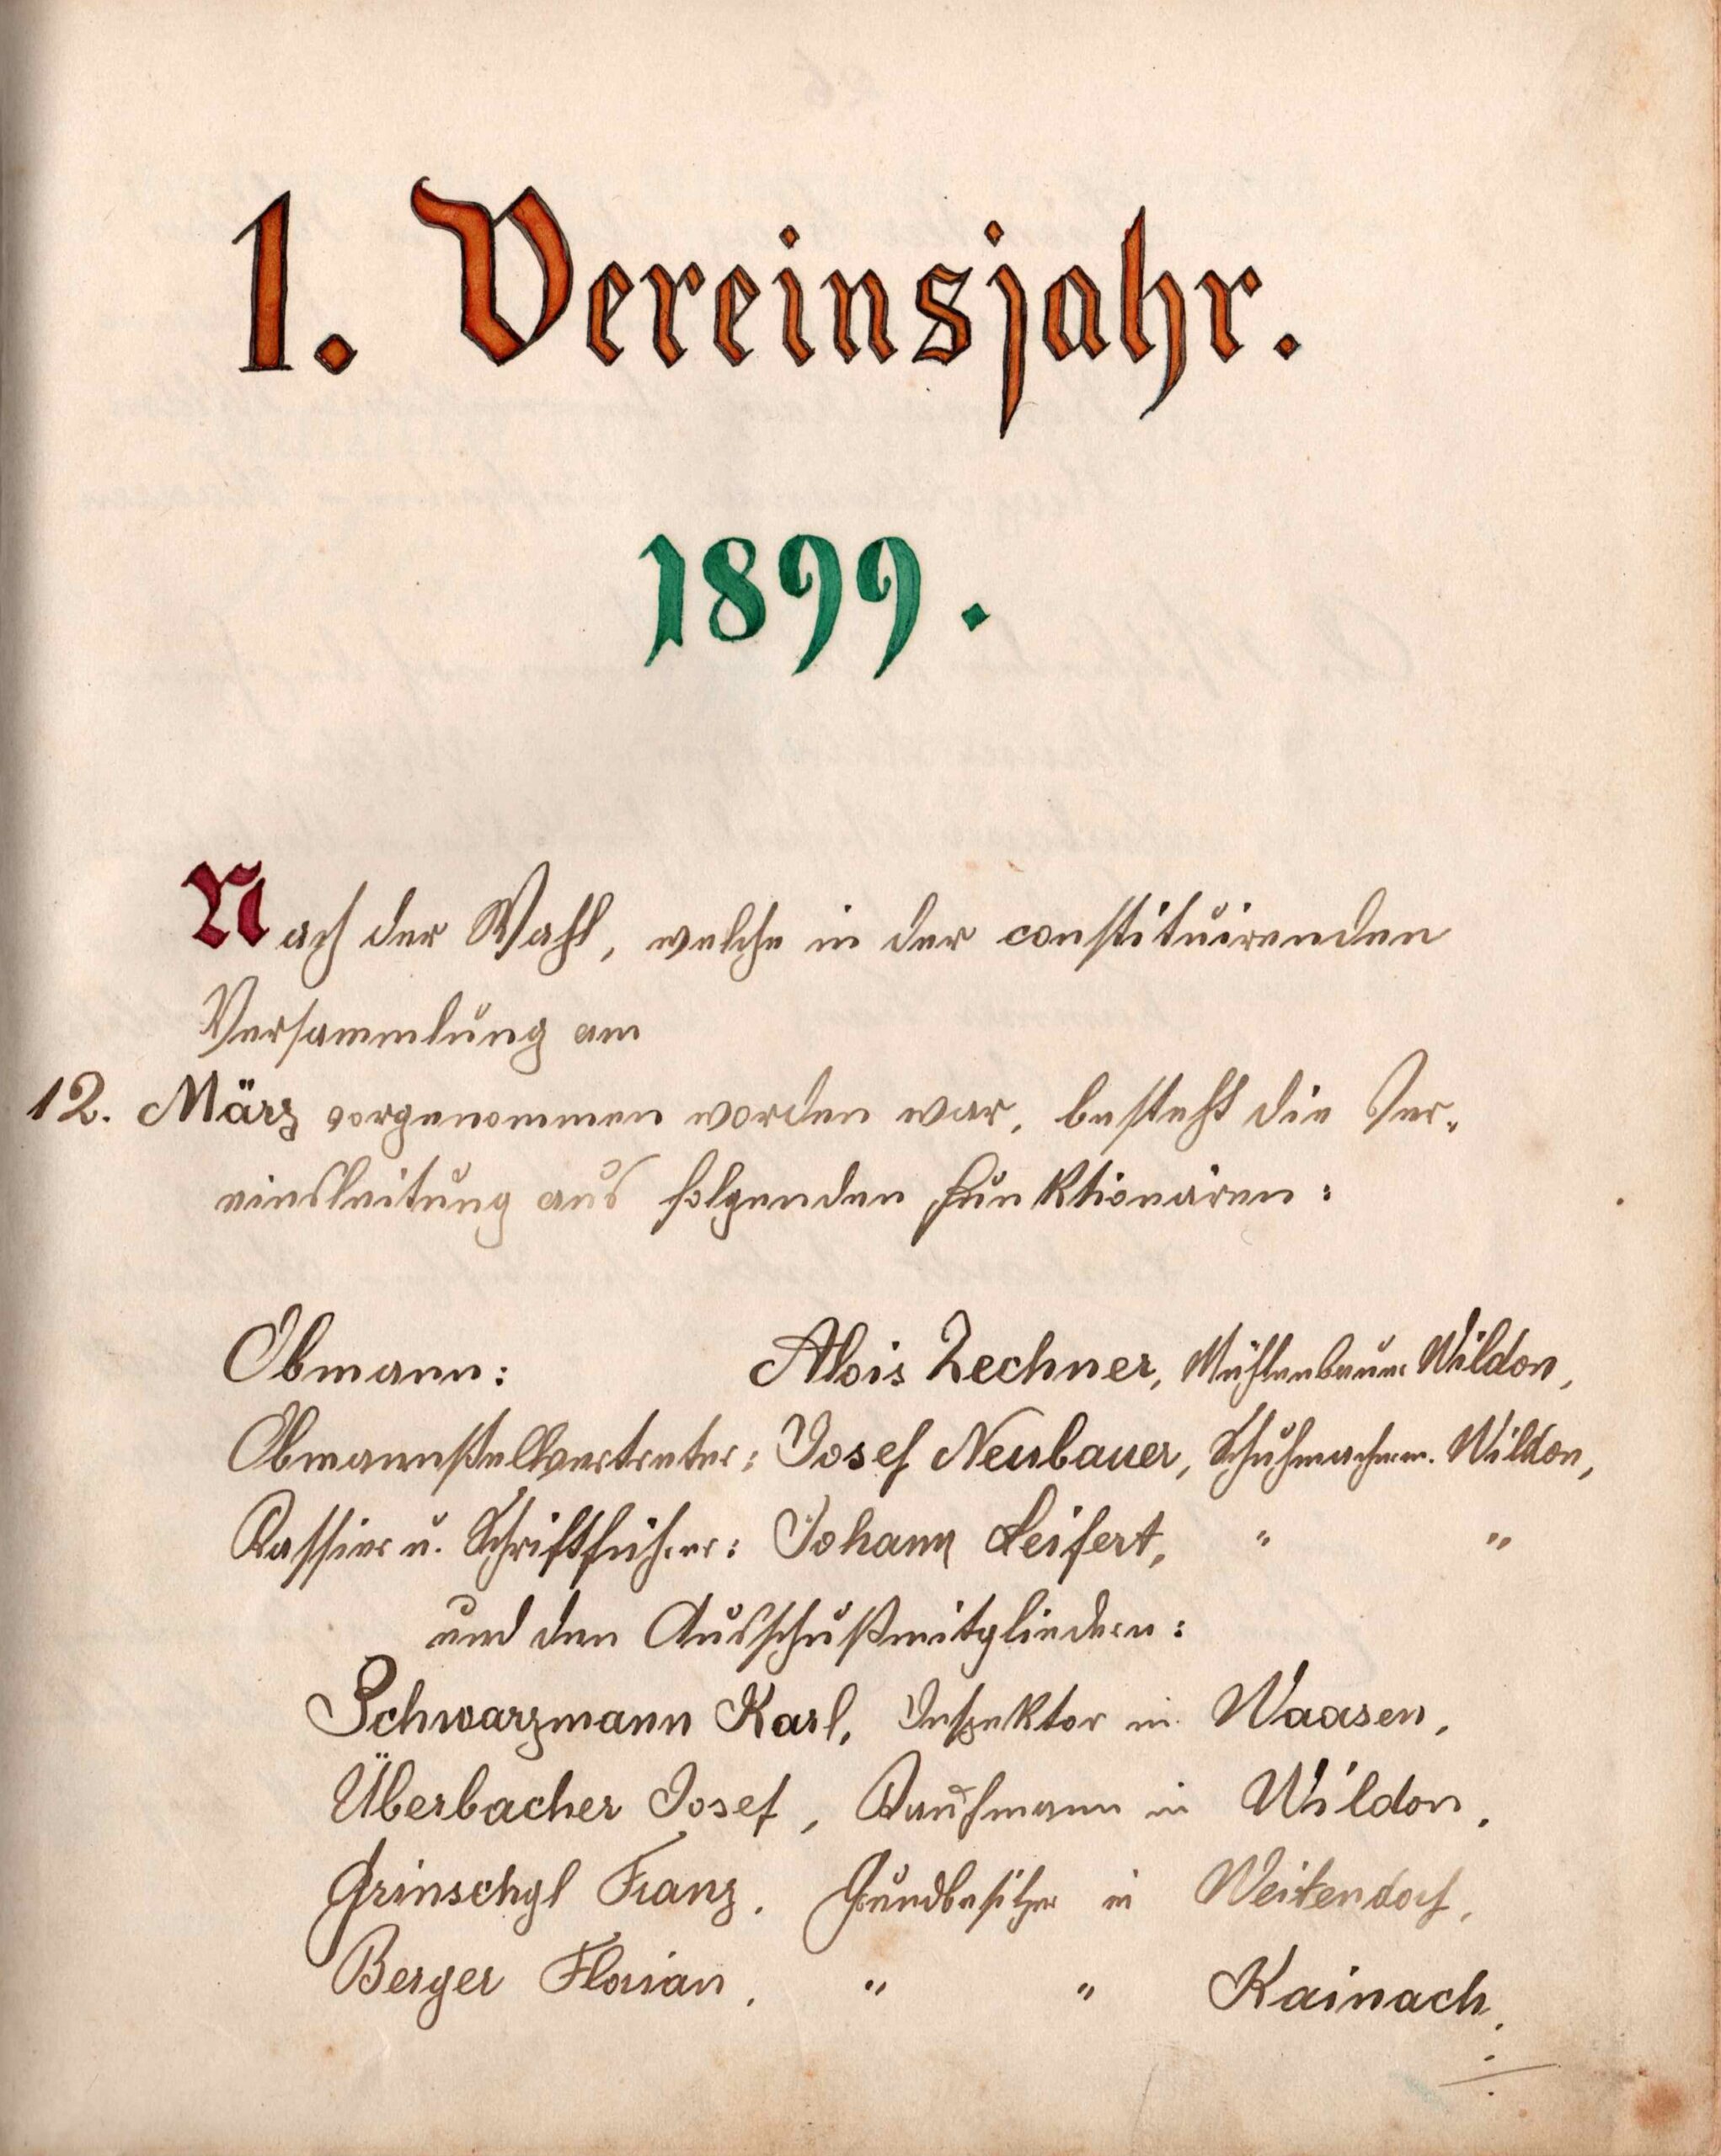 1. Vereinsjahr.
1899.
Nach der Wahl, welche in der constituirenden
Versammlung am
12. März vorgenommen worden war, besteht die Ver-
einsleitung aus folgenden Funktionären:
Obmann: Alois Zechner, Mühlenbauer Wildon,
Obmannstellvertreter: Josef Neubauer, Schuhmacherm. Wildon,
Kassier u. Schriftführer: Johann Seifert, " "
und den Ausschußmitgliedern:
Schwarzmann Karl, Inspektor in Waasen,
Überbacher Josef, Kaufmann in Wildon,
Grinschgl Franz, Grundbesitzer in Weitendorf,
Berger Florian, " " Kainach.